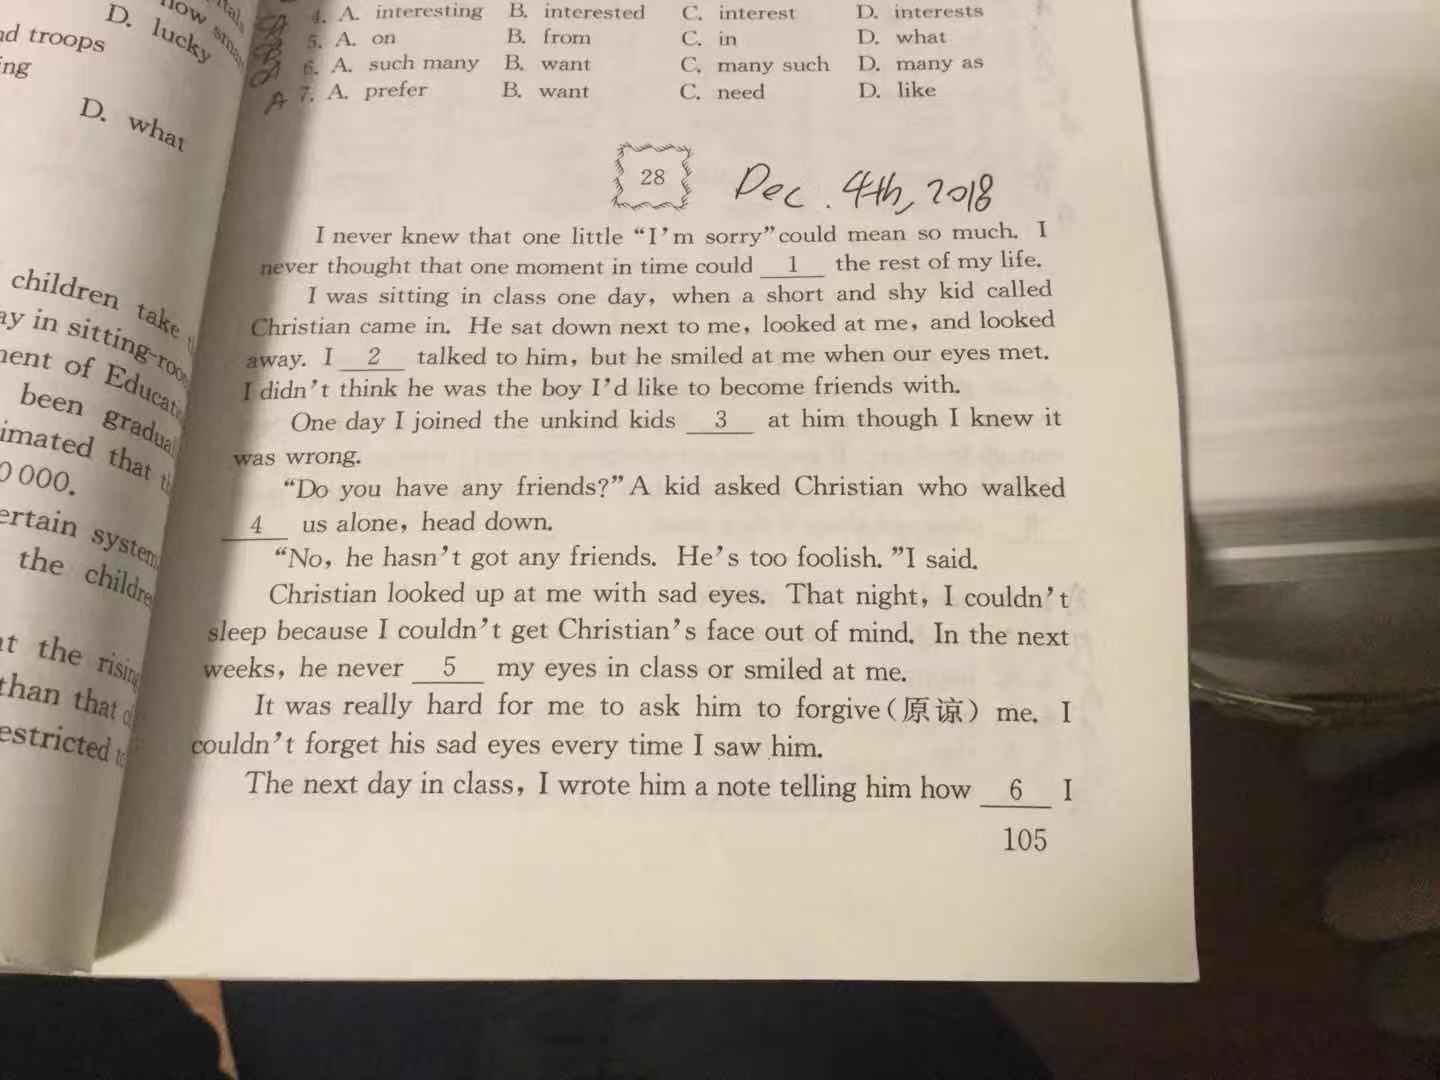 D. lucky
nd troops
ing
D. what
children take
ay in sitting-roo
ment of Educat
been gradua
imated that
0 000.
ertain system
the childre
at the rising
than that
estricted
4. A. interesting B. interested C. interest D. interests
5. A. on B. from C. in D. what
6. A. such many B. want C. many such D. many as
A 7. A. prefer B. want C. need D. like
28 Dec. 4th, 2018
I never knew that one little “I’m sorry”could mean so much. I
never thought that one moment in time could 1 the rest of my life.
I was sitting in class one day, when a short and shy kid called
Christian came in. He sat down next to me, looked at me, and looked
away. I 2 talked to him, but he smiled at me when our eyes met.
I didn’t think he was the boy I’d like to become friends with.
One day I joined the unkind kids 3 at him though I knew it
was wrong.
“Do you have any friends?”A kid asked Christian who walked
4 us alone, head down.
“No, he hasn’t got any friends. He’s too foolish.”I said.
Christian looked up at me with sad eyes. That night, I couldn’t
sleep because I couldn’t get Christian’s face out of mind. In the next
weeks, he never 5 my eyes in class or smiled at me.
It was really hard for me to ask him to forgive(原谅) me. I
couldn’t forget his sad eyes every time I saw him.
The next day in class, I wrote him a note telling him how 6 I
105